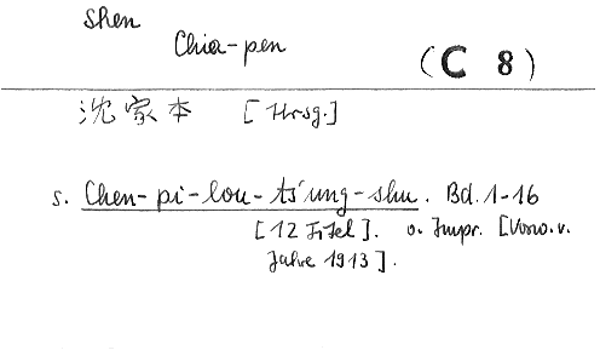 Shen
Chia-pen
(C 8)
沈家本 [Hrsg.]
s. Chen-pi-lou-ts'ung-shu. Bd. 1-16
[12 Titel]. o. Impr. [Vorw. v.
Jahre 1913].